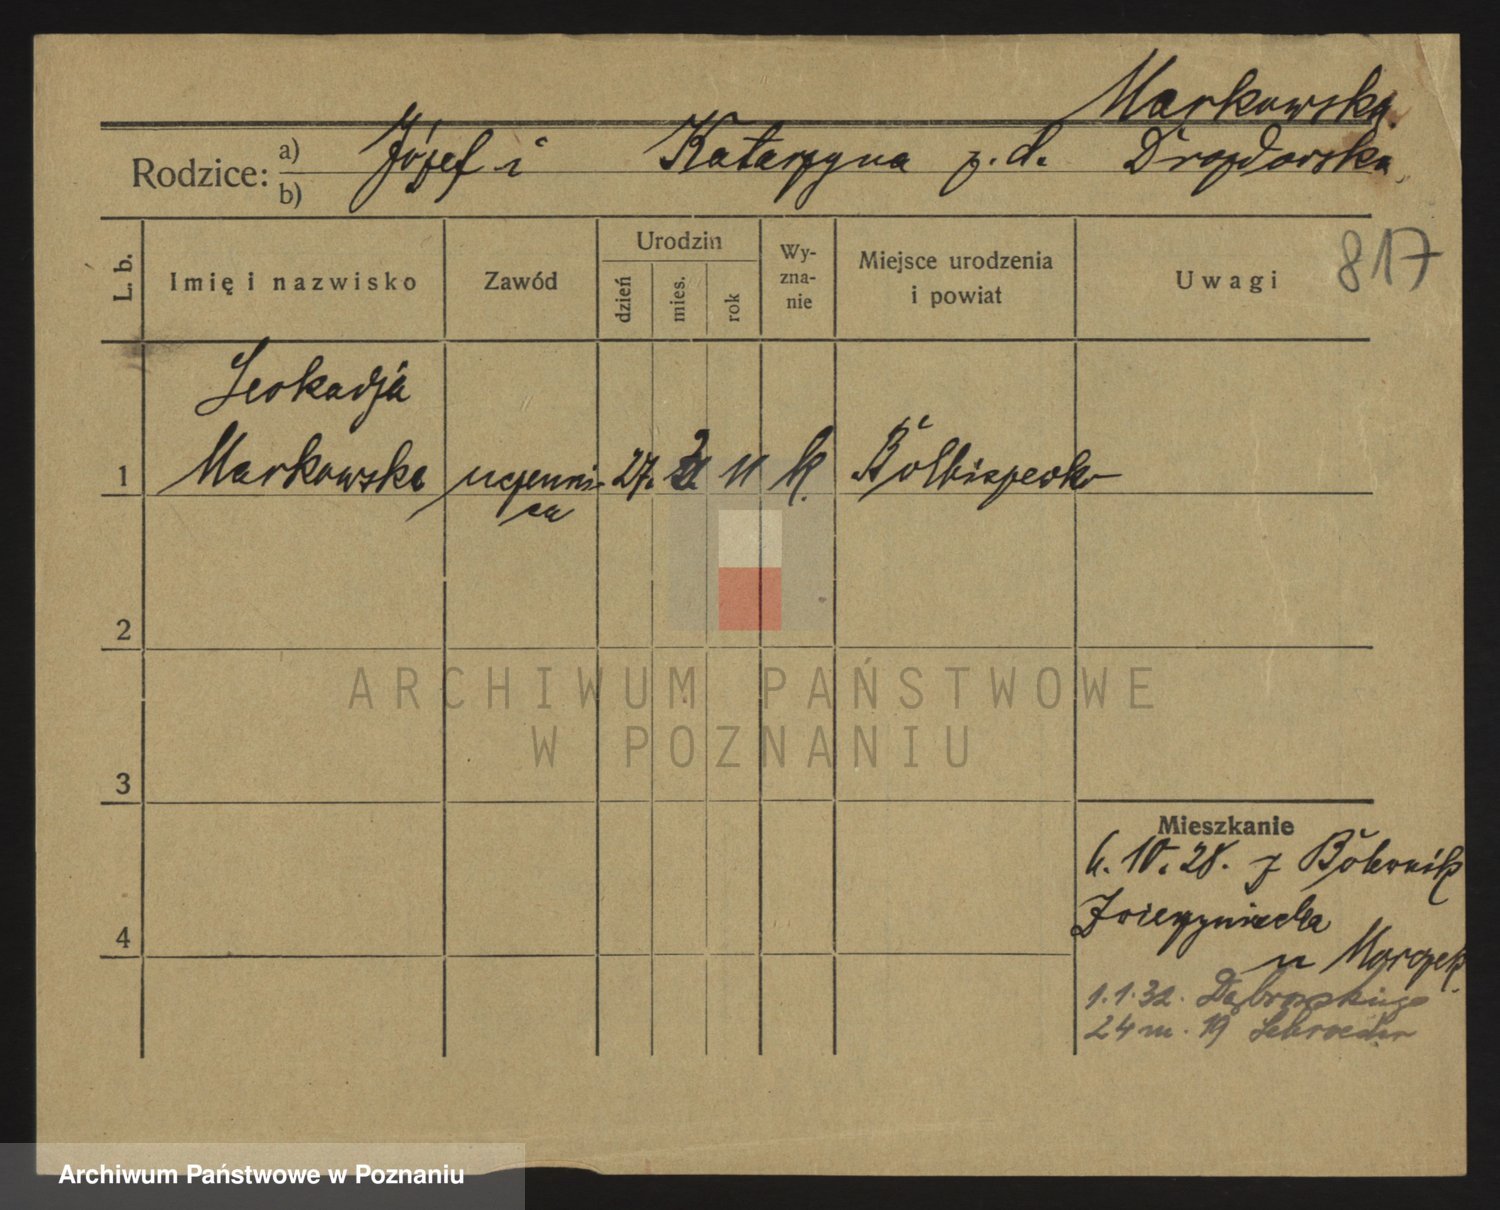 Markowska.
Rodzice: a) Józef i Katarzyna z. d. Drozdowska
b)
L. b. Imię i nazwisko Zawód Urodzin dzień mies. rok Wy-zna-nie Miejsce urodzenia i powiat Uwagi 817
Leokadja
1 Markowska uczenni- 27. 2 11 k.
ca
2
ARCHIWUM PAŃSTWOWE
W POZNANIU
3
Mieszkanie
6. 10. 28. z
Zwierzyniecka
4
u Marczek
1.1.32. Dąbrowskiego
24 m. 19 Schroeder
Archiwum Państwowe w Poznaniu